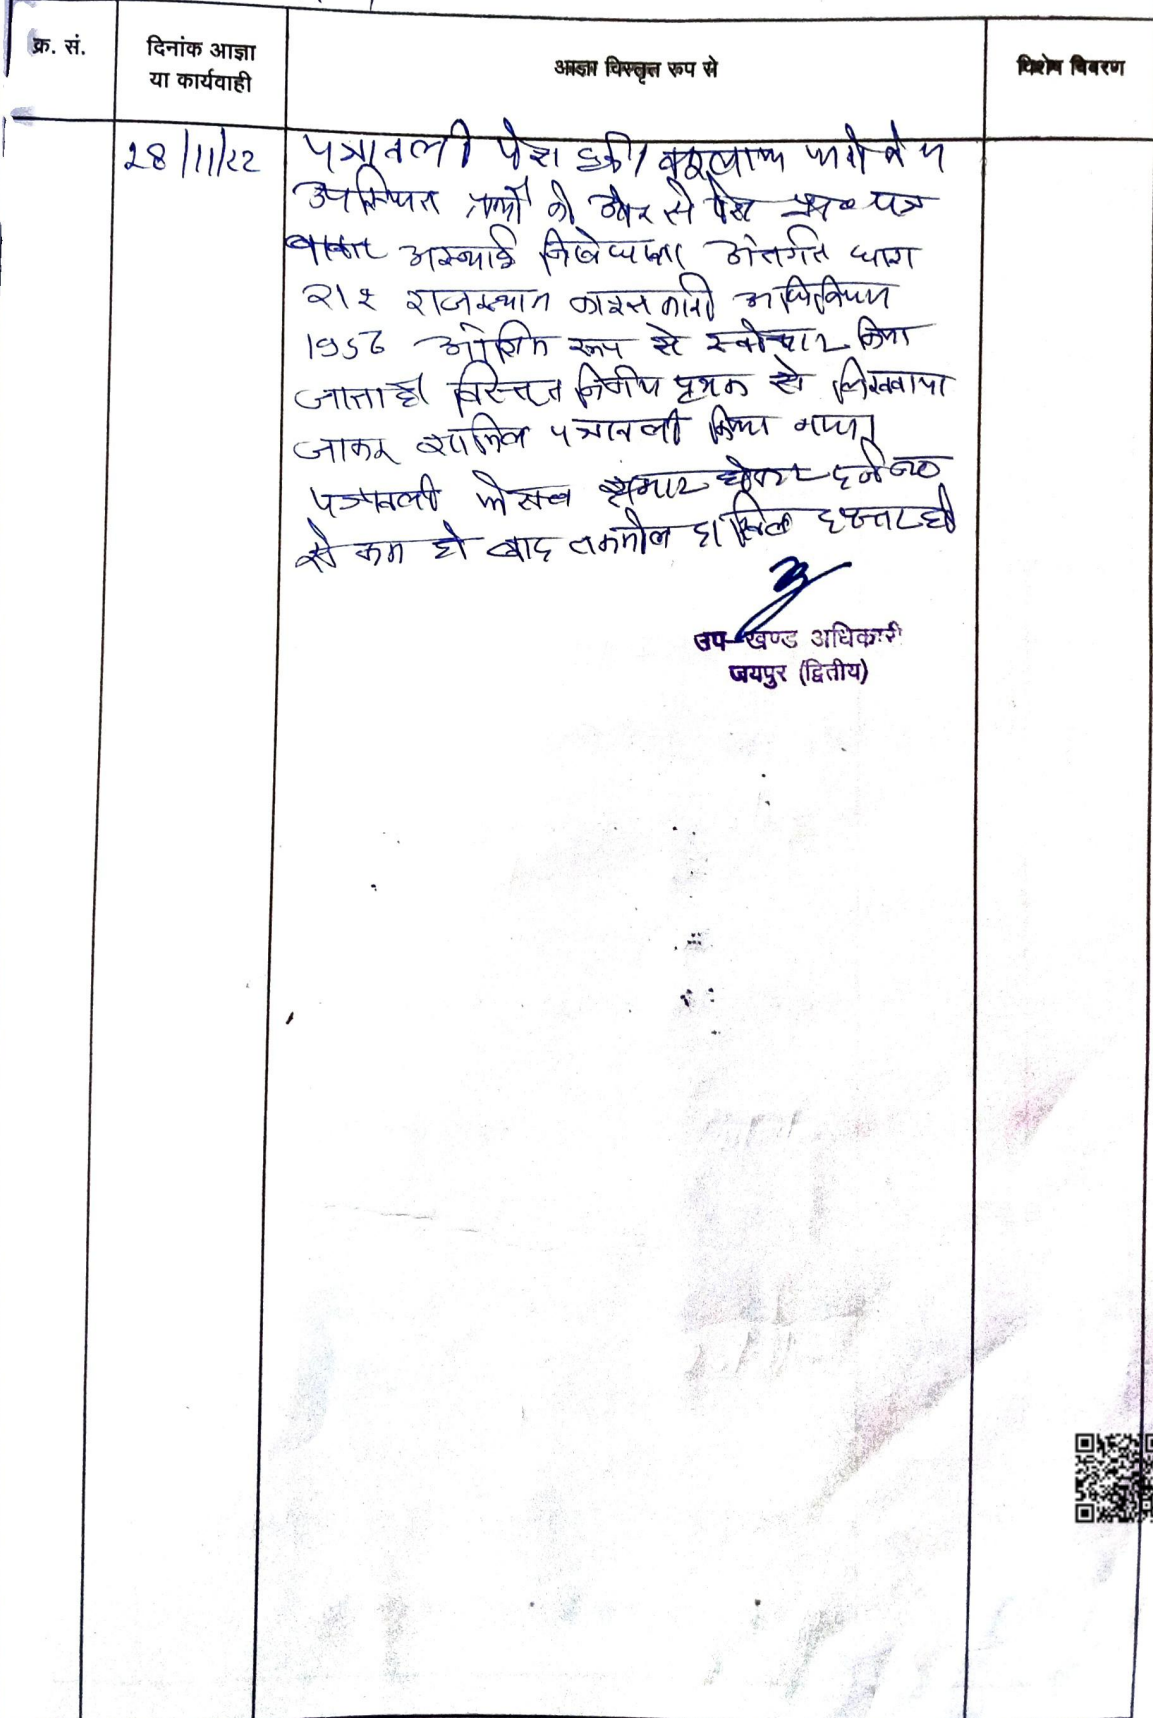 क्र. सं.
दिनांक आज्ञा
या कार्यवाही
आज्ञा विस्तृत रूप से
विशेष विवरण
28/11/22
पत्रावली पेश हुई।
उपस्थित की ओर से पेश पत्र
बाबत अस्थाई निषेधाज्ञा अंतर्गत धारा
212 राजस्थान काश्तकारी अधिनियम
1956 आंशिक रूप से स्वीकार किया
जाता है। विस्तृत निर्णय पृथक से लिखवाया
जाकर शामिल पत्रावली किया गया।
पत्रावली शुमार होकर
से कम हो बाद तकमील दाखिल दफ्तर हो
उप-खण्ड अधिकारी
जयपुर (द्वितीय)